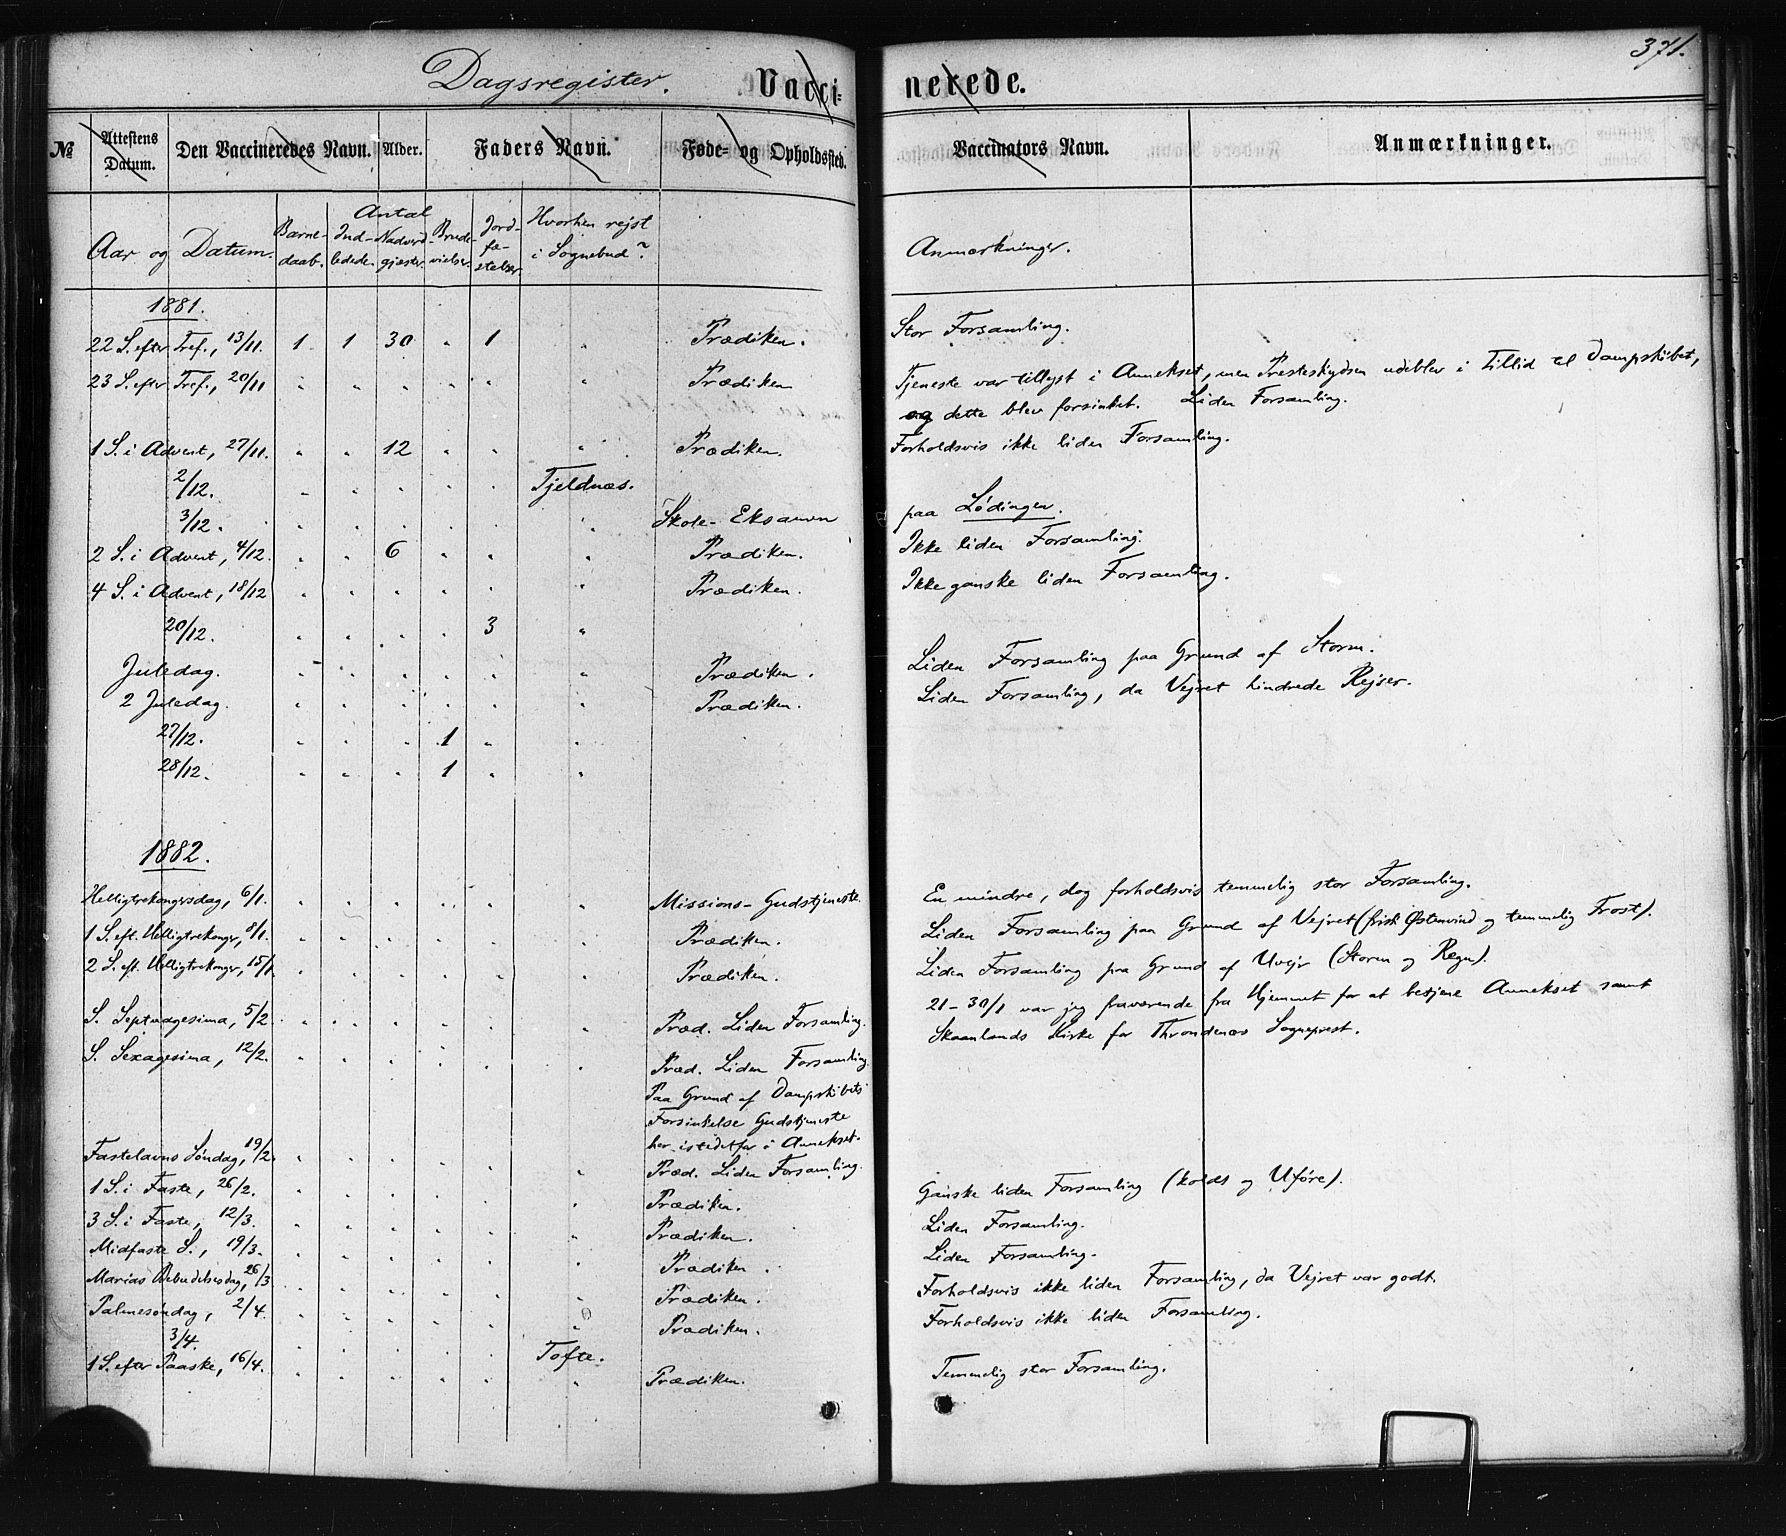 371.
Dagsregister. Vacci=nerede.
№ Attestens Datum. Den Vaccineredes Navn. Alder. Faders Navn. Føde- og Opholdssted. Vaccinators Navn. Anmærkninger.
Aar og Datum. Antal Barnedaab. Indledede. Nadverdgjæster. Brudevielser. Jordfæstelser. Hvorhen rejst i Sognebud? Anmærkninger.
1881.
22 S. efter Tref., 13/11. 1 1 30 " 1 " Prædiken. Stor Forsamling.
23 S. efter Tref., 20/11 " " " " " " Prædiken Tjeneste var tillyst i Annekset, men Presteskydsen udeblev i Tillid til Dampskibet,
og dette blev forsinket. Liden Forsamling.
1 S. i Advent, 27/11. " " 12 " " " Prædiken. Forholdsvis ikke liden Forsamling.
2/12. " " " " " Tjeldnæs.
3/12. " " " " " " Skole-Eksamen paa Lødingen.
2 S. i Advent, 4/12. " " 6 " " " Prædiken. Ikke liden Forsamling.
4 S. i Advent, 18/12 " " " " " " Prædiken. Ikke ganske liden Forsamling.
20/12. " " " " 3 "
Juledag. " " " " " " Prædiken. Liden Forsamling paa Grund af Storm.
2 Juledag. " " " " " " Prædiken. Liden Forsamling, da Vejret hindrede Rejser.
27/12. " " " 1 " "
28/12. " " " 1 " "
1882.
Helligtrekongersdag, 6/1. " " " " " " Missions-Gudstjeneste. En mindre, dog forholdsvis temmelig stor Forsamling.
1 S. eft. Helligtrekonger, 8/1. " " " " " " Prædiken. Liden Forsamling paa Grund af Vejret (frisk Østenvind og temmelig Frost).
2 S. eft. Helligtrekonger, 15/1 " " " " " " Prædiken. Liden Forsamling paa Grund af Uvejr (Storm og Regn).
21-30/1 var jeg fraværende fra Hjemmet for at betjene Annekset samt
S. Septuagesima, 5/2. " " " " " " Præd. Liden Forsamling. Skaanlands Kirke for Throndenæs Sogneprest.
S. Sexagesima, 12/2. " " " " " " Præd. Liden Forsamling
Paa Grund af Dampskibets
Forsinkelse Gudstjeneste
her istedetfor i Annekset.
Fastelavns Søndag, 19/2. " " " " " " Præd. Liden Forsamling.
1 S. i Faste, 26/2. " " " " " " Prædiken. Ganske liden Forsamling (koldt og Uføre).
3 S. i Faste, 12/3. " " " " " " Prædiken. Liden Forsamling.
Midfaste S., 19/3. " " " " " " Prædiken. Liden Forsamling.
Marias Bebudelsesdag, 26/3 " " " " " " Prædiken. Forholdsvis ikke liden Forsamling, da Vejret var godt.
Palmesøndag, 2/4. " " " " " " Prædiken. Forholdsvis ikke liden Forsamling.
3/4. " " " " " Tofte.
1 S. efter Paaske, 16/4. " " " " " " Prædiken. Temmelig stor Forsamling.